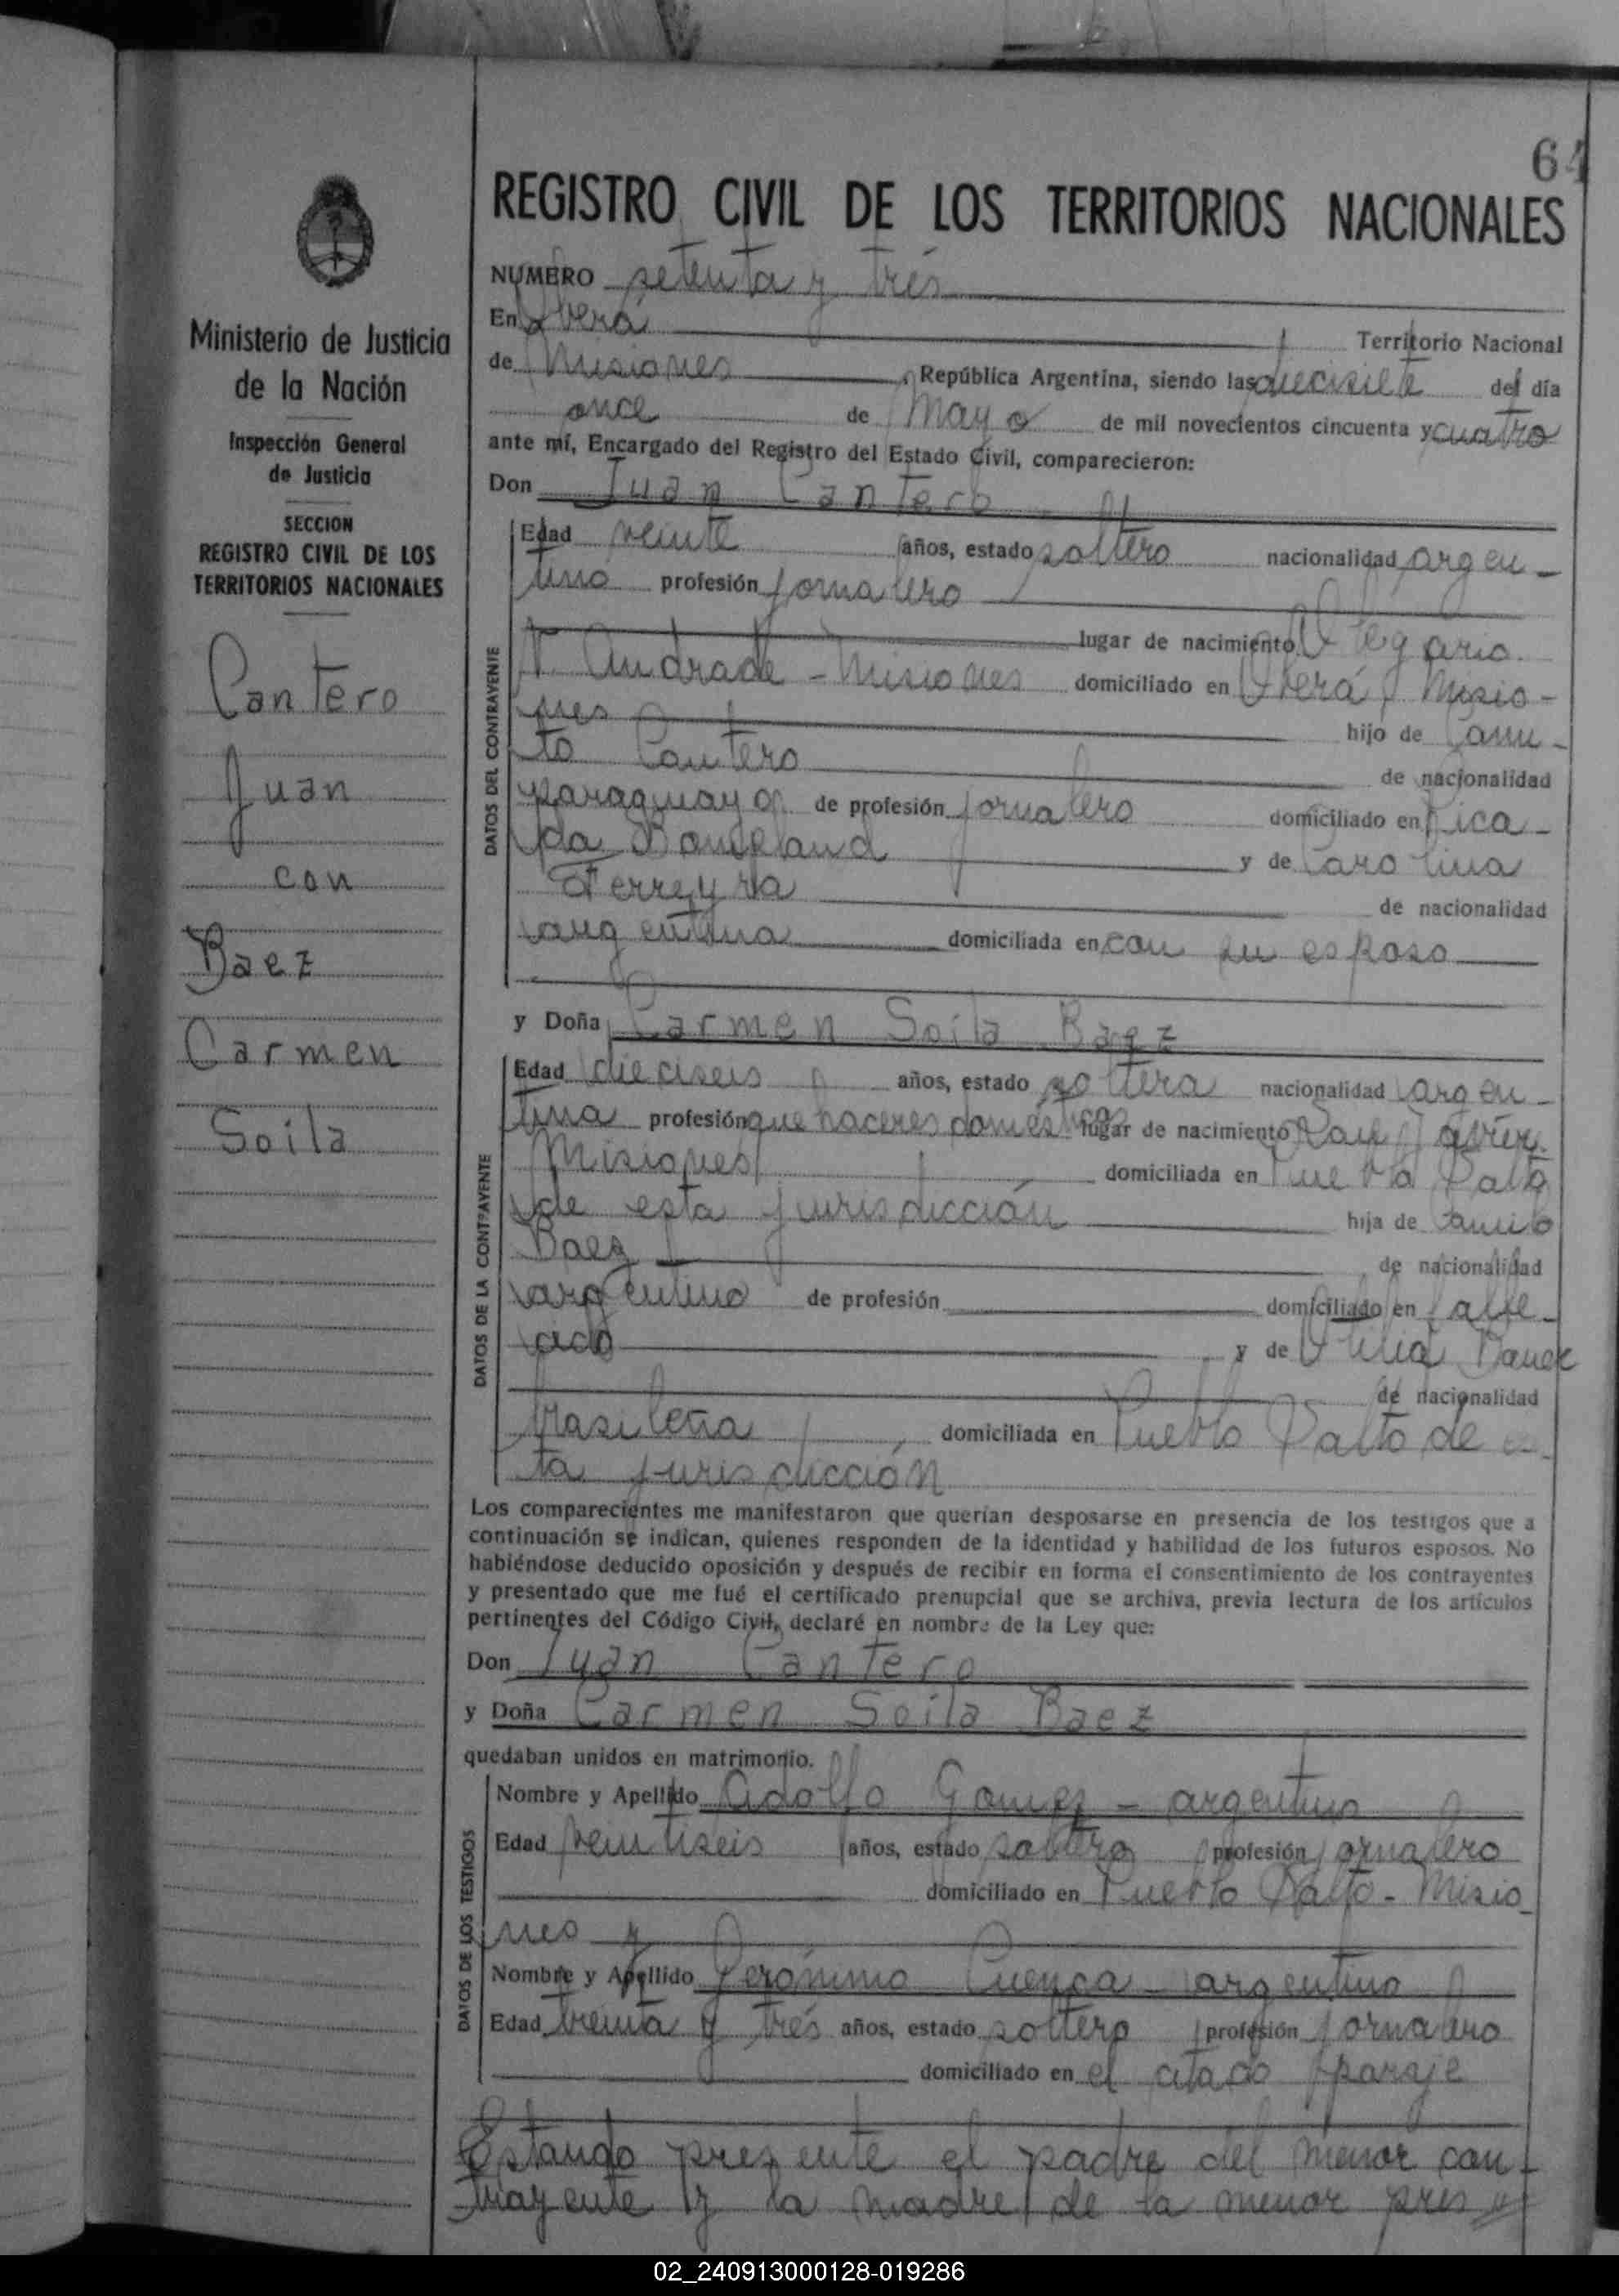 64
REGISTRO CIVIL DE LOS TERRITORIOS NACIONALES
Ministerio de Justicia
de la Nación
Inspección General
de Justicia
SECCION
REGISTRO CIVIL DE LOS
TERRITORIOS NACIONALES
Cantero
Juan
con
Baez
Carmen
Soila
NUMERO setenta y trés
En Oberá Territorio Nacional
de Misiones, República Argentina, siendo las diecisiete del día
once de Mayo de mil novecientos cincuenta y cuatro
ante mí, Encargado del Registro del Estado Civil, comparecieron:
Don Juan Cantero
DATOS DEL CONTRAYENTE
Edad veinte años, estado soltero nacionalidad argen-
tino profesión jornalero
lugar de nacimiento Olegario
V. Andrade - Misiones domiciliado en Oberá, Misio-
nes hijo de Canu-
to Cantero de nacionalidad
paraguayo de profesión jornalero domiciliado en Pica-
da y de Carolina
Ferreyra de nacionalidad
argentina domiciliada en con su esposo
y Doña Carmen Soila Baez
DATOS DE LA CONTRAYENTE
Edad dieciseis años, estado soltera nacionalidad argen-
tina profesión quehaceres domésticos lugar de nacimiento San Javier
Misiones domiciliada en Pueblo Salto
de esta jurisdicción hija de Camilo
Baez de nacionalidad
argentino de profesión domiciliado en falle-
cido y de
de nacionalidad
brasileña, domiciliada en Pueblo Salto de es-
ta jurisdicción
Los comparecientes me manifestaron que querían desposarse en presencia de los testigos que a
continuación se indican, quienes responden de la identidad y habilidad de los futuros esposos. No
habiéndose deducido oposición y después de recibir en forma el consentimiento de los contrayentes
y presentado que me fué el certificado prenupcial que se archiva, previa lectura de los artículos
pertinentes del Código Civil, declaré en nombre de la Ley que:
Don Juan Cantero
y Doña Carmen Soila Baez
quedaban unidos en matrimonio.
DATOS DE LOS TESTIGOS
Nombre y Apellido Adolfo Gomez - argentino
Edad veintiseis años, estado soltero profesión jornalero
domiciliado en Pueblo Salto - Misio-
nes y
Nombre y Apellido Gerónimo Cuenca - argentino
Edad treinta y trés años, estado soltero profesión jornalero
domiciliado en el citado paraje
Estando presente el padre del menor con-
trayente y la madre de la menor pres
02_240913000128-019286